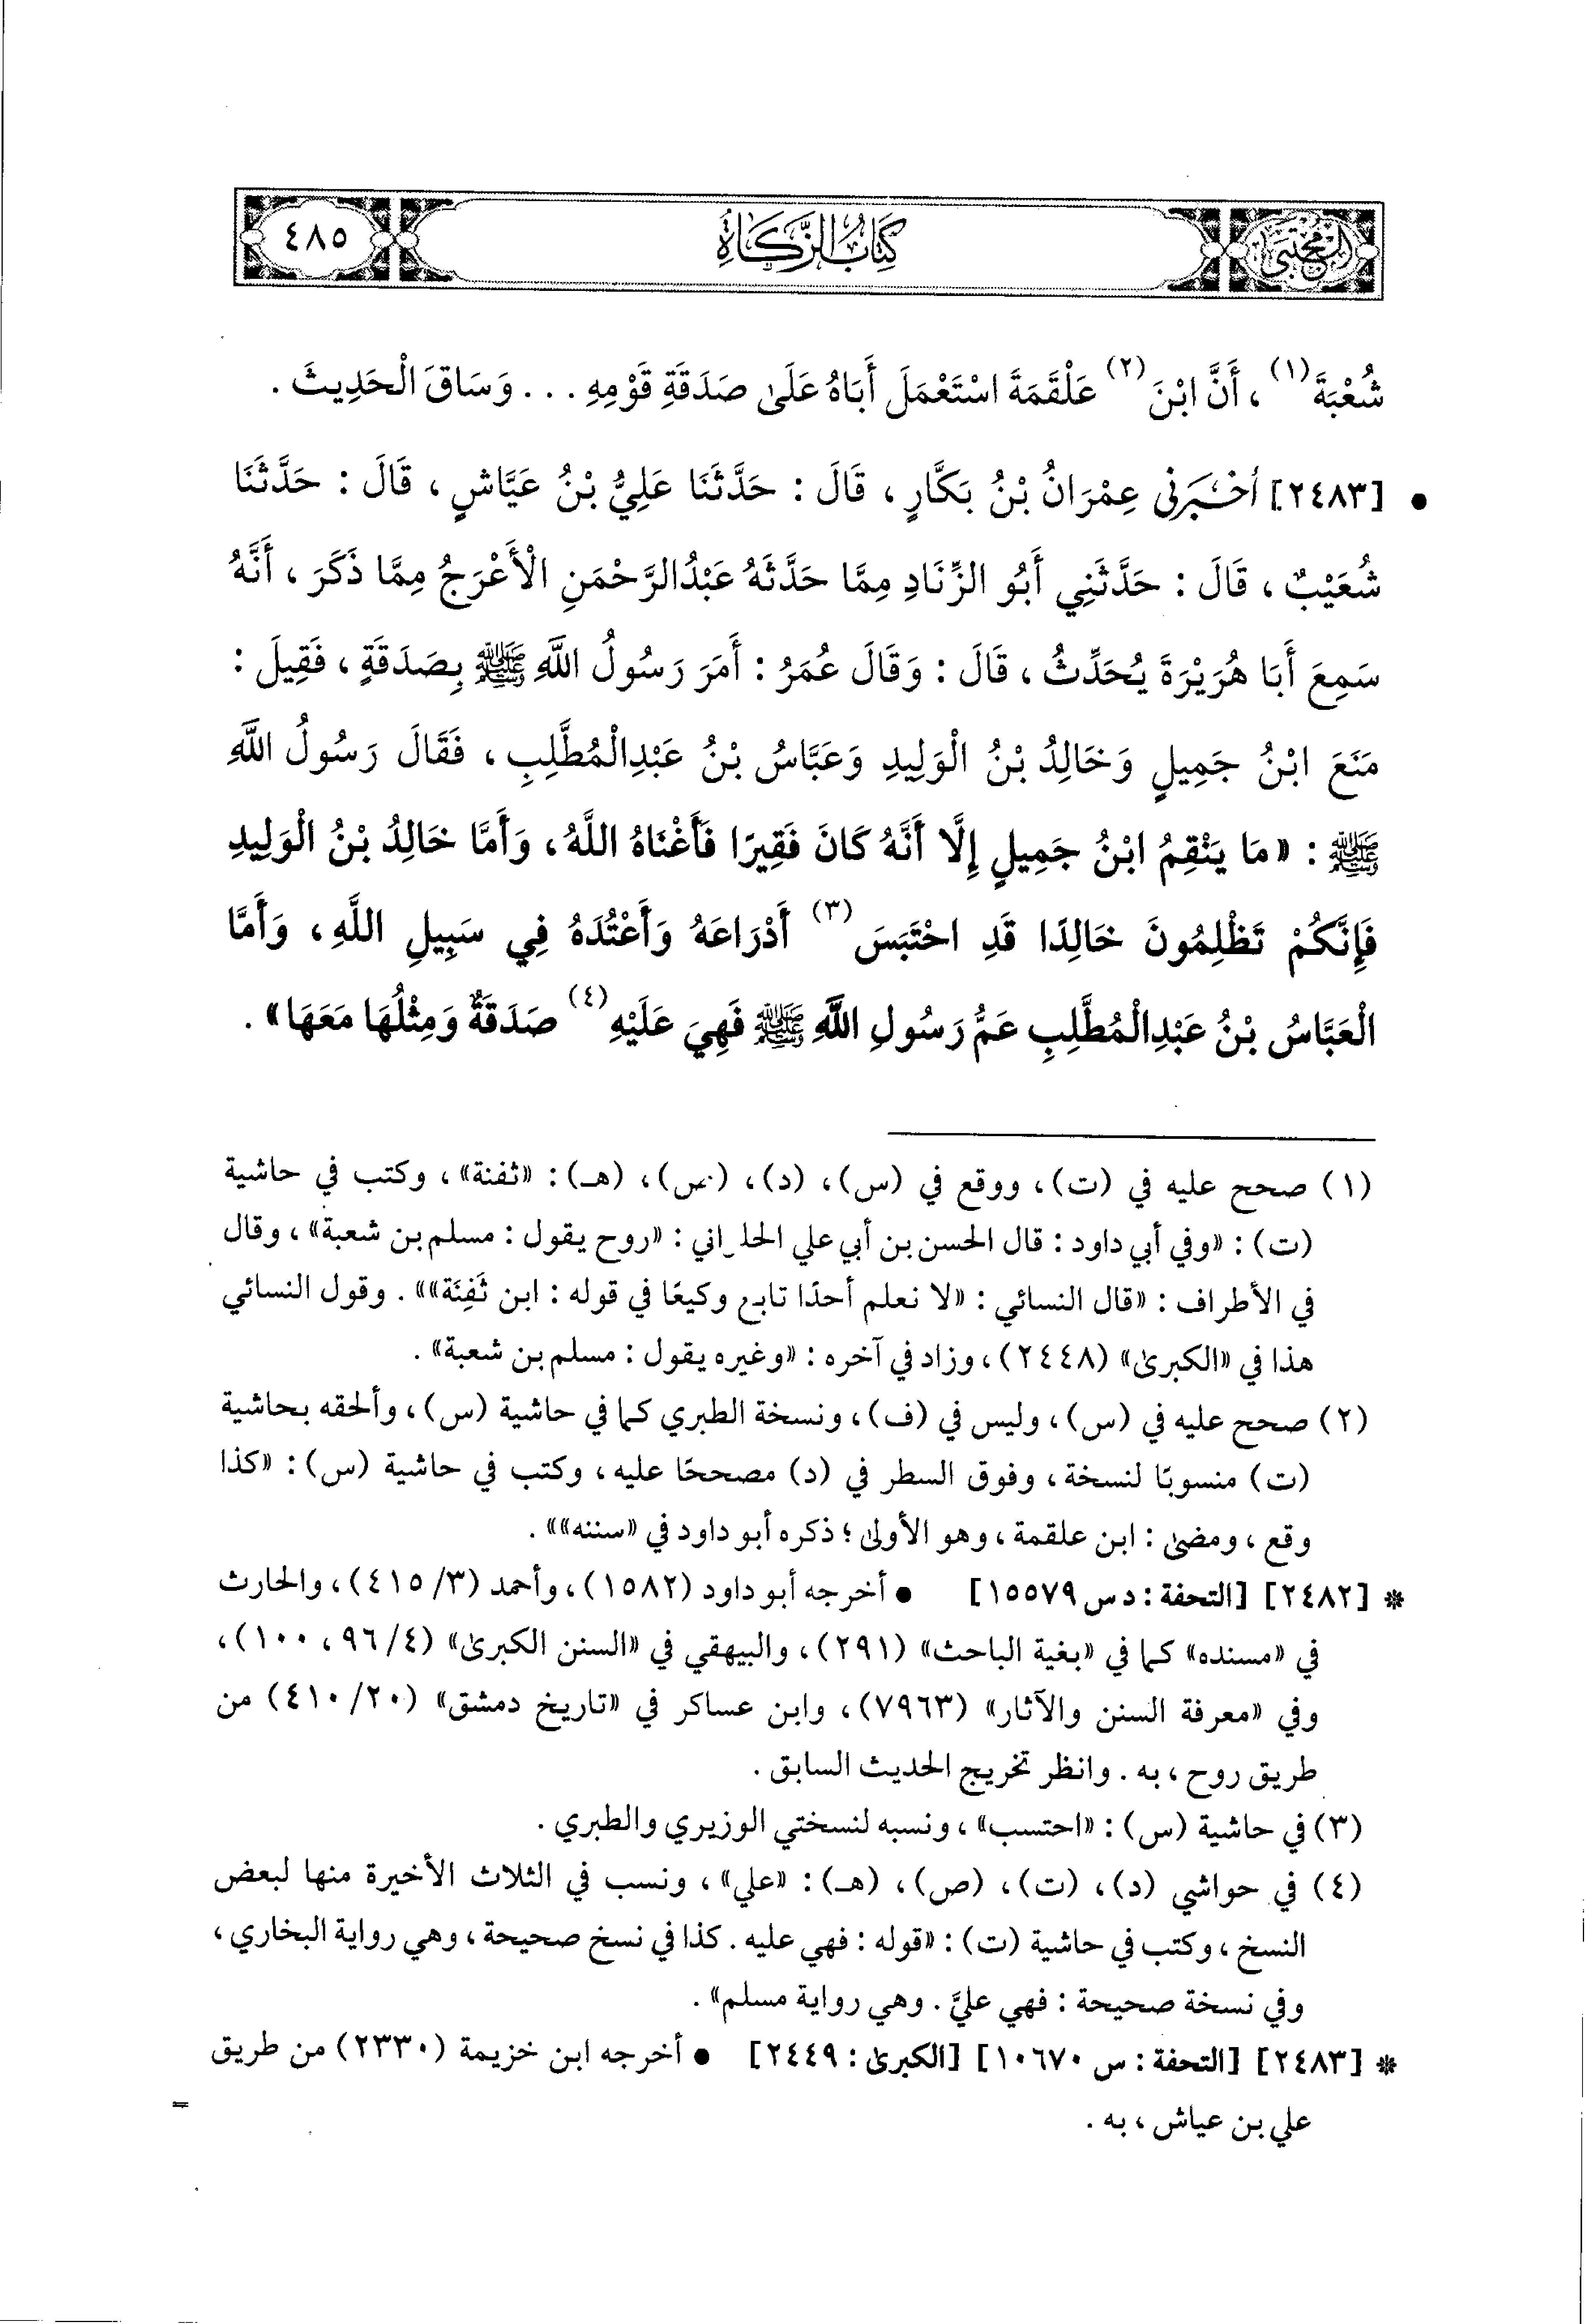 المجتبى
كِتَابُ الزَّكَاةِ
٤٨٥
شُعْبَةَ(١)، أَنَّ ابْنَ(٢) عَلْقَمَةَ اسْتَعْمَلَ أَبَاهُ عَلَىٰ صَدَقَةِ قَوْمِهِ ... وَسَاقَ الْحَدِيثَ .
• [٢٤٨٣] أَخْبَرَنِي عِمْرَانُ بْنُ بَكَّارٍ، قَالَ : حَدَّثَنَا عَلِيُّ بْنُ عَيَّاشٍ، قَالَ : حَدَّثَنَا
شُعَيْبٌ، قَالَ : حَدَّثَنِي أَبُو الزِّنَادِ مِمَّا حَدَّثَهُ عَبْدُالرَّحْمَنِ الْأَعْرَجُ مِمَّا ذَكَرَ، أَنَّهُ
سَمِعَ أَبَا هُرَيْرَةَ يُحَدِّثُ، قَالَ : وَقَالَ عُمَرُ : أَمَرَ رَسُولُ اللَّهِ ﷺ بِصَدَقَةٍ، فَقِيلَ :
مَنَعَ ابْنُ جَمِيلٍ وَخَالِدُ بْنُ الْوَلِيدِ وَعَبَّاسُ بْنُ عَبْدِالْمُطَّلِبِ، فَقَالَ رَسُولُ اللَّهِ
ﷺ : «مَا يَنْقِمُ ابْنُ جَمِيلٍ إِلَّا أَنَّهُ كَانَ فَقِيرًا فَأَغْنَاهُ اللَّهُ، وَأَمَّا خَالِدُ بْنُ الْوَلِيدِ
فَإِنَّكُمْ تَظْلِمُونَ خَالِدًا قَدِ احْتَبَسَ(٣) أَدْرَاعَهُ وَأَعْتُدَهُ فِي سَبِيلِ اللَّهِ، وَأَمَّا
الْعَبَّاسُ بْنُ عَبْدِالْمُطَّلِبِ عَمُّ رَسُولِ اللَّهِ ﷺ فَهِيَ عَلَيْهِ(٤) صَدَقَةٌ وَمِثْلُهَا مَعَهَا» .
(١) صحح عليه في (ت)، ووقع في (س)، (د)، (ص)، (هـ) : «ثفنة»، وكتب في حاشية
(ت) : «وفي أبي داود : قال الحسن بن أبي علي الحلواني : «روح يقول : مسلم بن شعبة»، وقال
في الأطراف : «قال النسائي : «لا نعلم أحدًا تابع وكيعًا في قوله : ابن ثَفِنَة»» . وقول النسائي
هذا في «الكبرىٰ» (٢٤٤٨)، وزاد في آخره : «وغيره يقول : مسلم بن شعبة» .
(٢) صحح عليه في (س)، وليس في (ف)، ونسخة الطبري كما في حاشية (س)، وألحقه بحاشية
(ت) منسوبًا لنسخة، وفوق السطر في (د) مصححًا عليه، وكتب في حاشية (س) : «كذا
وقع، ومضىٰ : ابن علقمة، وهو الأولىٰ؛ ذكره أبو داود في «سننه»» .
* [٢٤٨٢] [التحفة : د س ١٥٥٧٩] • أخرجه أبو داود (١٥٨٢)، وأحمد (٣/ ٤١٥)، والحارث
في «مسنده» كما في «بغية الباحث» (٢٩١)، والبيهقي في «السنن الكبرىٰ» (٤/ ٩٦، ١٠٠)،
وفي «معرفة السنن والآثار» (٧٩٦٣)، وابن عساكر في «تاريخ دمشق» (٢٠/ ٤١٠) من
طريق روح، به . وانظر تخريج الحديث السابق .
(٣) في حاشية (س) : «احتسب»، ونسبه لنسختي الوزيري والطبري .
(٤) في حواشي (د)، (ت)، (ص)، (هـ) : «علي»، ونسب في الثلاث الأخيرة منها لبعض
النسخ، وكتب في حاشية (ت) : «قوله : فهي عليه . كذا في نسخ صحيحة، وهي رواية البخاري،
وفي نسخة صحيحة : فهي عليَّ . وهي رواية مسلم» .
* [٢٤٨٣] [التحفة : س ١٠٦٧٠] [الكبرىٰ : ٢٤٤٩] • أخرجه ابن خزيمة (٢٣٣٠) من طريق
علي بن عياش، به .
=